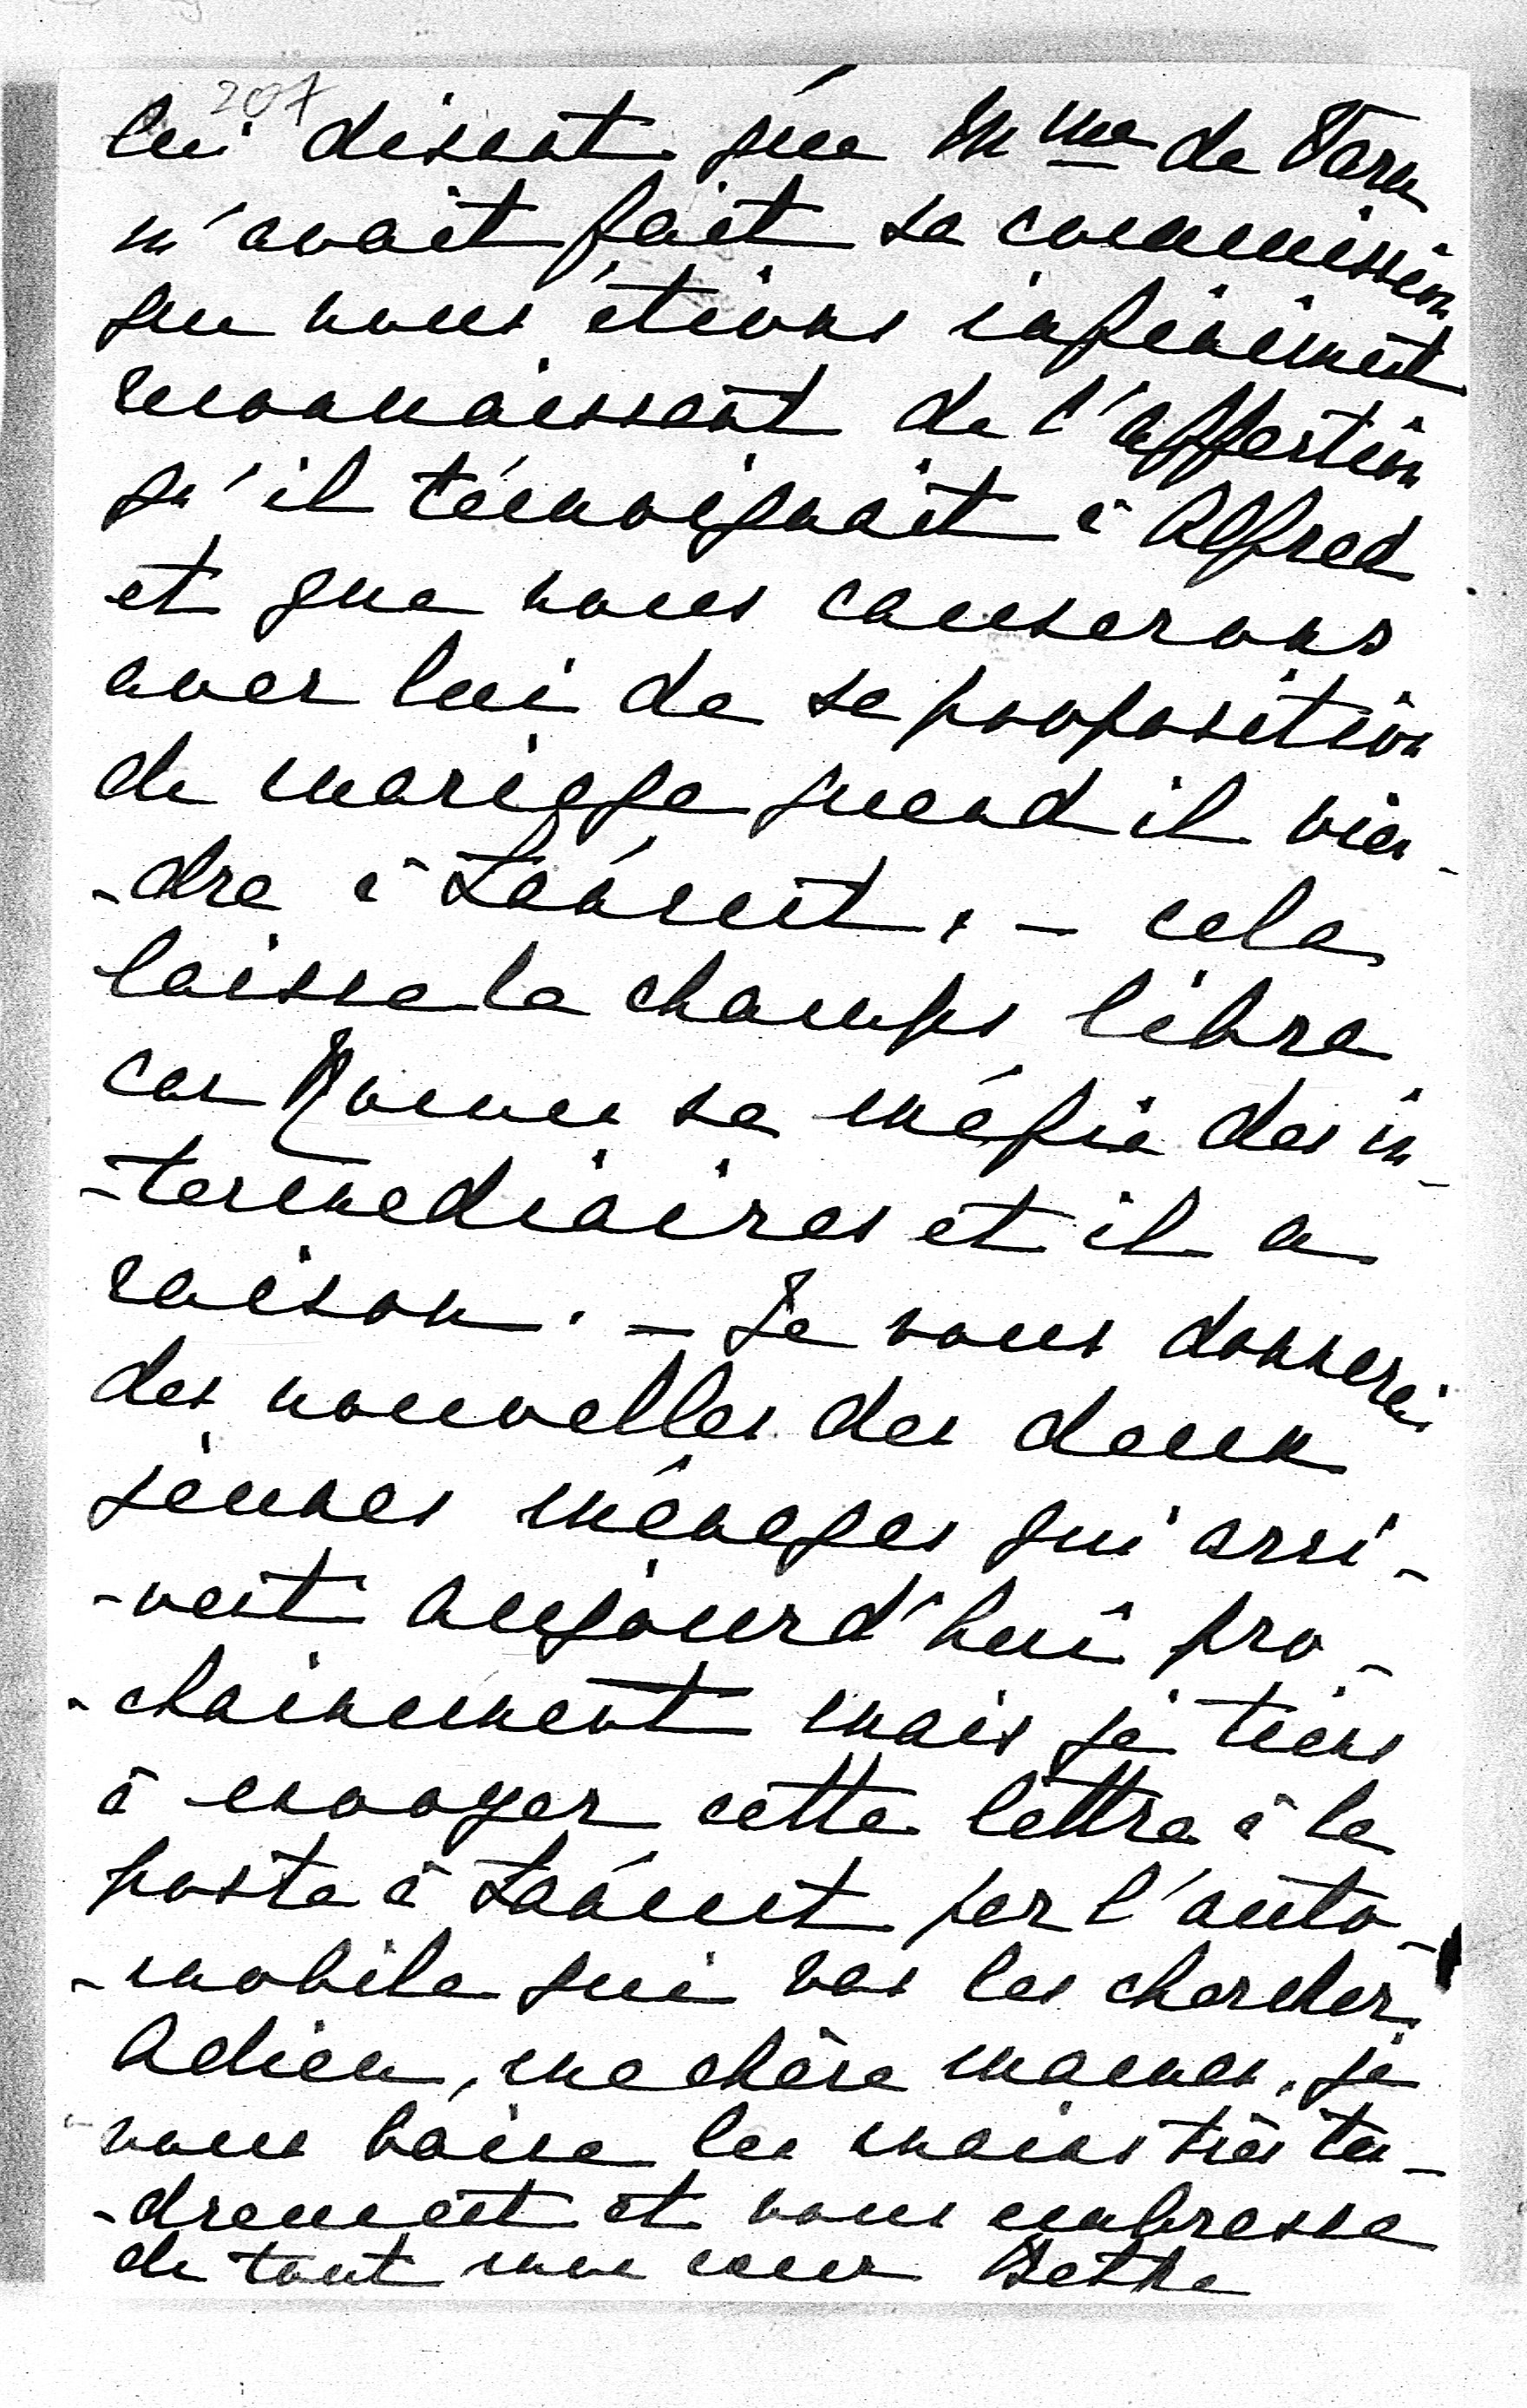 207
lui disant que Mme de Tarn
m'avait fait sa commission
que nous étions infiniment
reconnaissant de l'affection
qu'il témoignait à Alfred
et que nous causerons
avec lui de sa proposition
de mariage quand il vien-
-dra à Zabreh. - cela
laisse le champs libre
car se méfie des in-
-termediaires et il a
raison. - Je vous donnerai
des nouvelles des deux
jeunes ménages qui arri-
-vent aujourd'hui pro-
-chainement mais je tiens
à envoyer cette lettre à la
poste à par l'auto-
-mobile qui vas les chercher.
Adieu, ma chère maman, je
vous baise les mains très ten-
-drement et vous embrasse
de tout mon cœur